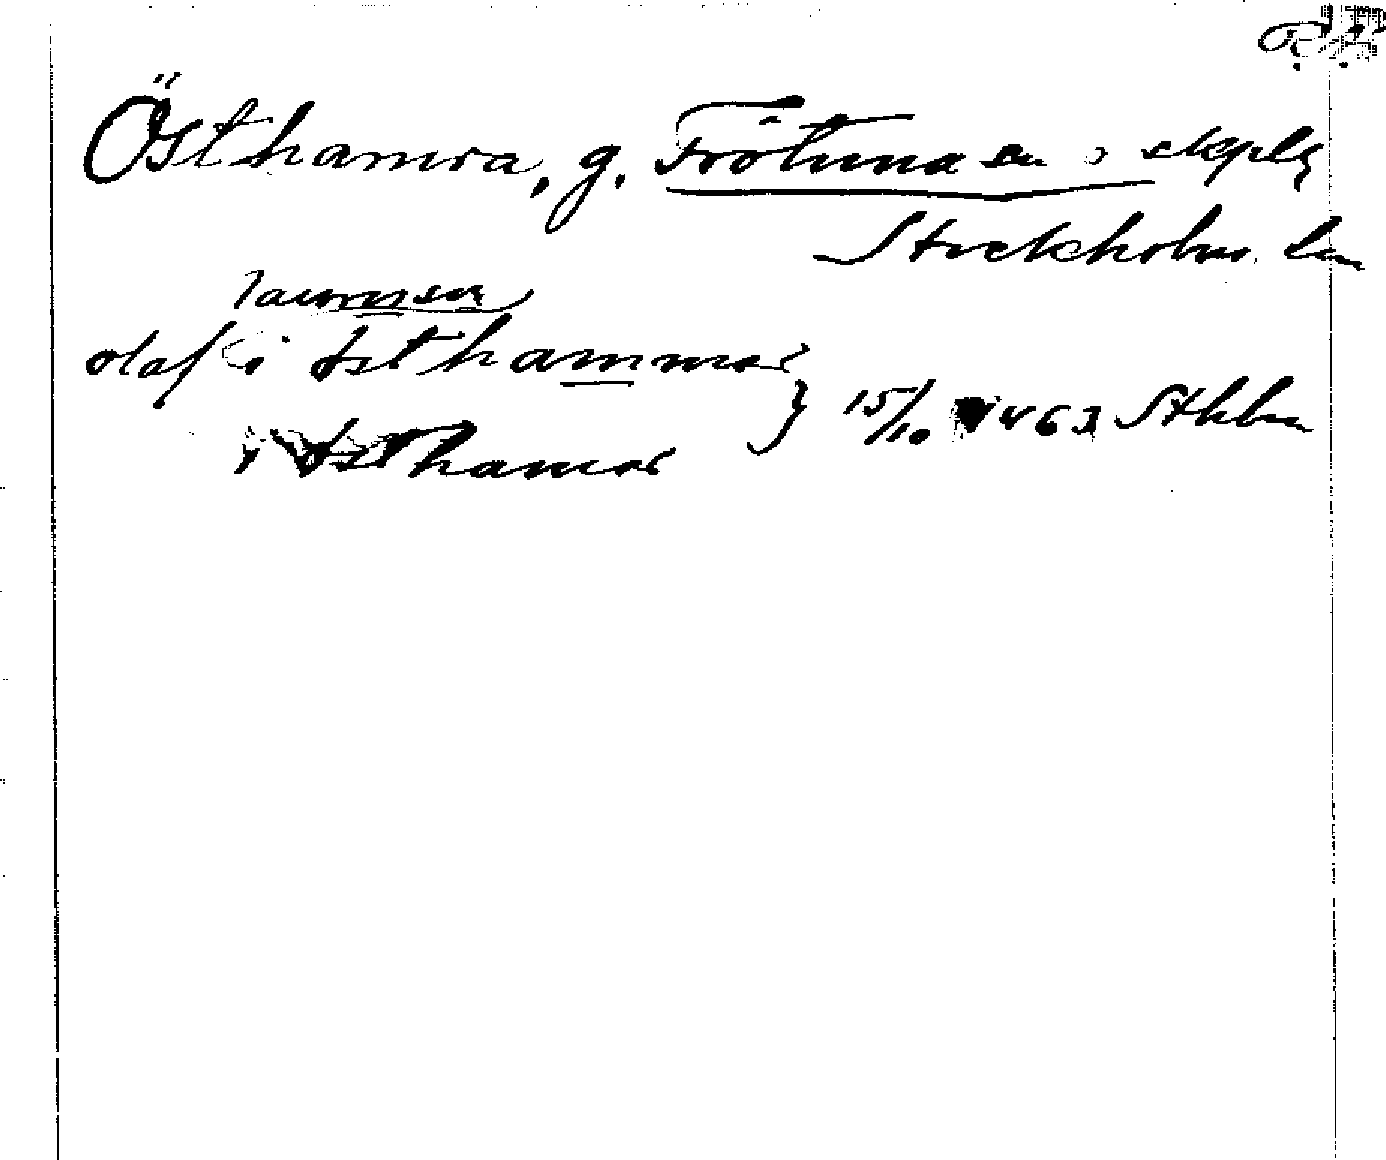 R.A.
Östhamra, g. Frötuna sn o skplg
Stockholms län
laurensen
olaf i østhammar
i østhamar } 15/10 1463 Sthlm